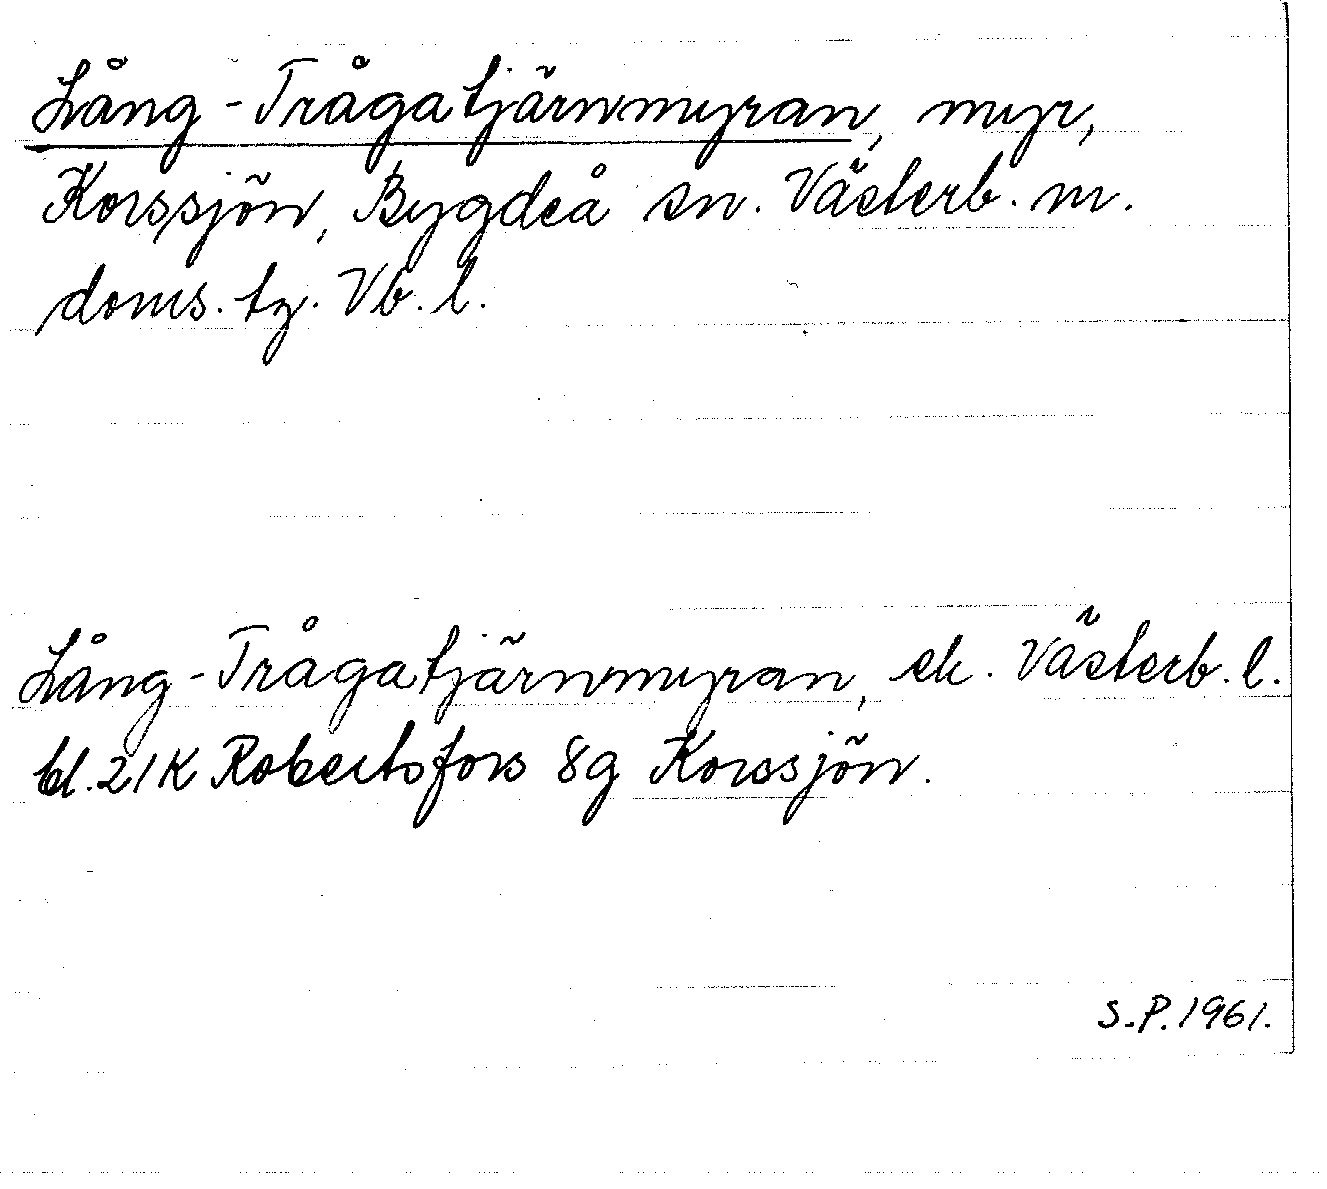 Lång-Trågatjärnmyran, myr,
Korssjön, Bygdeå sn. Västerb. m.
doms. tg. Vb. l.
Lång-Trågatjärnmyran, ek. Västerb. l.
bl. 21K Robertsfors 8g Korssjön.
S.P. 1961.